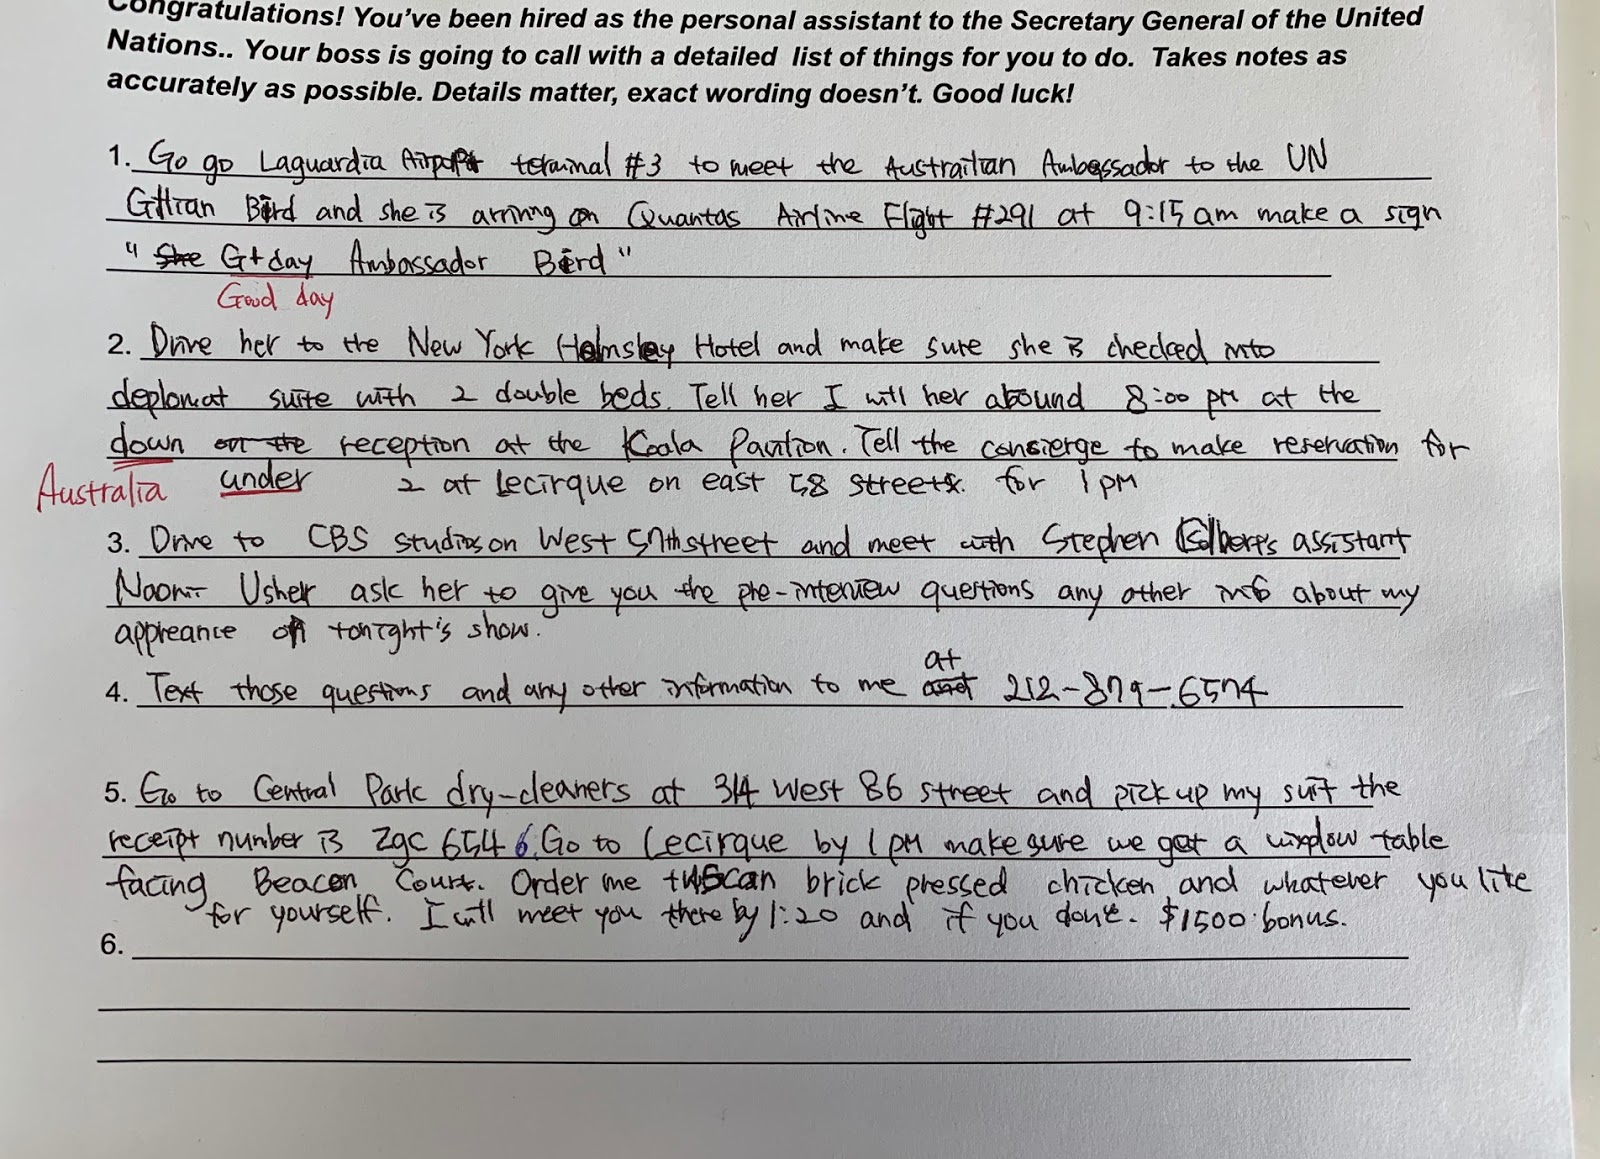 Congratulations! You've been hired as the personal assistant to the Secretary General of the United
Nations.. Your boss is going to call with a detailed list of things for you to do. Takes notes as
accurately as possible. Details matter, exact wording doesn't. Good luck!
1. Go go Laguardia Airport terminal #3 to meet the Austrailian Ambassador to the UN
Gillian Bird and she is arriving on Quantas Airline Flight #291 at 9:15 am make a sign
" She G+day Ambassador Bird "
Good day
2. Drive her to the New York Helmsley Hotel and make sure she is checked into
deplomat suite with 2 double beds. Tell her I will her abound 8:00 pm at the
down on the reception at the Koala Pavilion. Tell the concierge to make reservation for
Australia under 2 at Lecirque on east 58 street. for 1 pm
3. Drive to CBS studios on West 57th street and meet with Stephen Colbert's assistant
Noomi Usher ask her to give you the pre-interview questions any other info about my
appreance on tonight's show.
at
4. Text those questions and any other information to me 212-879-6574
5. Go to Central Park dry-cleaners at 314 West 86 street and pick up my suit the
receipt number is Zgc 654 6. Go to Lecirque by 1 pm make sure we get a window table
facing Beacon Court. Order me tuscan brick pressed chicken and whatever you like
for yourself. I will meet you there by 1:20 and if you done. $1500 bonus.
6.